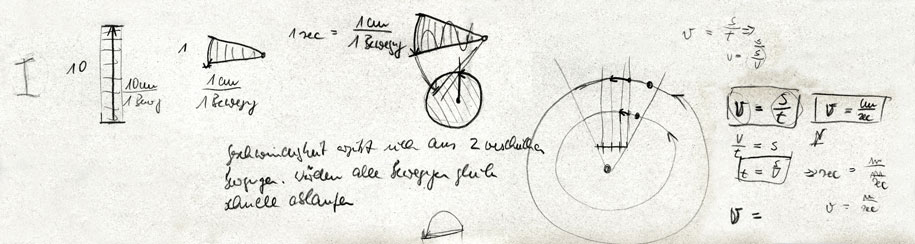 10
10cm
1 Beweg
1
1cm
1 Bewegg
1 sec = 1cm
1 Bewegg
Geschwindigkeit ergibt sich aus 2 verschiednen
Bewegungen. Würden alle Bewegungen gleich
schnelle ablaufen
v = s/t ⇒
v = s/t
v = cm/sec
v/t = s
t = s/v
⇒ sec =
v = m/sec
v =